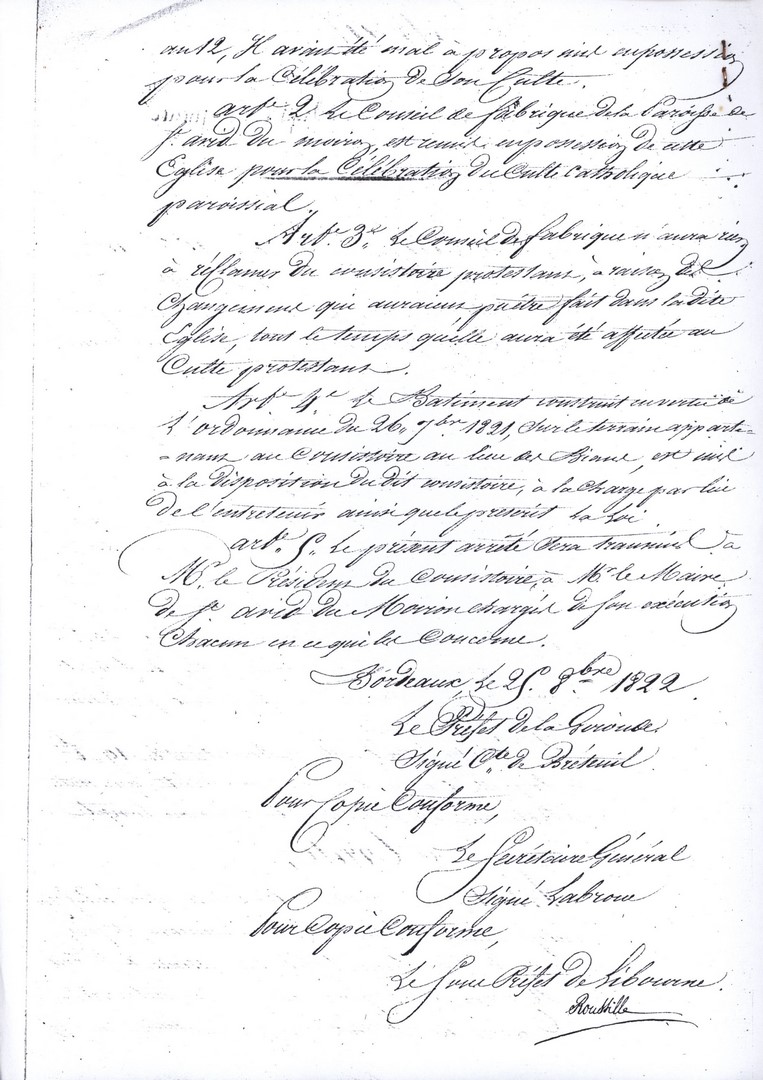 an 12, Il avait été mal à propos mis en possession
pour la Célébration de son Culte.
arte. 2. Le Conseil de fabrique de la Paroisse de
St. avid du moiron, est remis en possession de cette
Eglise pour la Célébration du Culte Catholique
paroissial.
Arte. 3e. Le Conseil de fabrique n'aura rien
à réclamer du consistoire protestant, à raison des
Changement qui auraient pu être fait dans la dite
Eglise, tout le temps quelle aura été affectée au
Culte protestant.
Arte. 4e Le Batiment construit en vertu de
L'ordonnance du 26. 7bre 1821, sur le terrain apparte-
-nant au Consistoire au lieu des Biens, est mis
à la disposition du dit consistoire, à la charge par lui
de l'entretenir ainsi que le prescrit La Loi.
arte. 5. Le présent arrêté sera transmis à
Mr. le Président du Consistoire, à Mr. le Maire
de St. avid du Moiron chargés de son exécution
Chacun en ce qui les Concerne.
Bordeaux, le 25. 8bre 1822.
Le Préfet de la Gironde,
Signé Cte de Breteuil
Pour Copie Conforme,
Le Secrétaire Général
Signé Labroue
Pour Copie Conforme,
Le Sous Préfet de Libourne.
Roussille